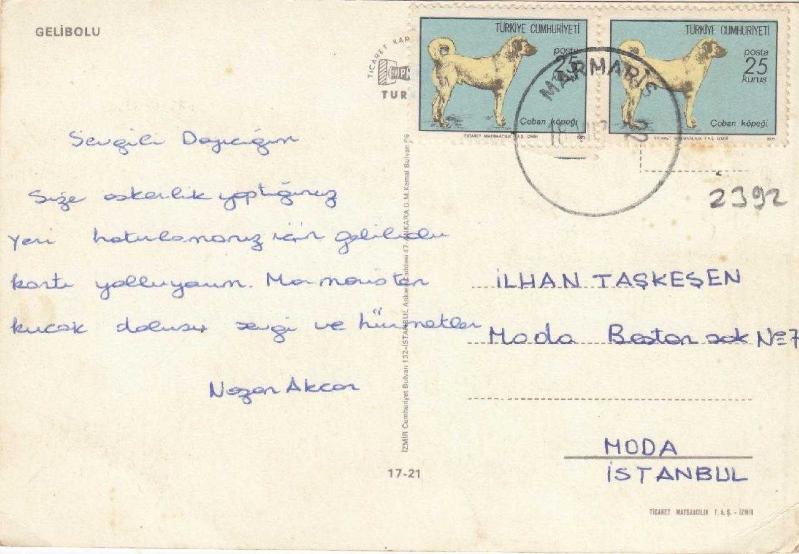 GELİBOLU
TİCARET KAR
TUR
TÜRKİYE CUMHURİYETİ
posta
25
Çoban köpeği
TİCARET MATBAACILIK T.A.Ş. İZMİR
TÜRKİYE CUMHURİYETİ
posta
25
kuruş
Çoban köpeği
TİCARET MATBAACILIK T.A.Ş. İZMİR
MARMARİS
2392
Sevgili Dayıcığım
Size askerlik yaptığınız
yeri hatırlamanız için gelibolu
kartı yolluyorum. Marmaristen
kucak dolusu sevgi ve hürmetler
Nezan Akcan
İLHAN TAŞKEŞEN
Moda Bostan sok No=7
MODA
İSTANBUL
İZMİR Cumhuriyet Bulvarı 132-İSTANBUL, Ankara Caddesi 47-ANKARA G.M.Kemal Bulvarı
17-21
TİCARET MATBAACILIK T.A.Ş. - İZMİR